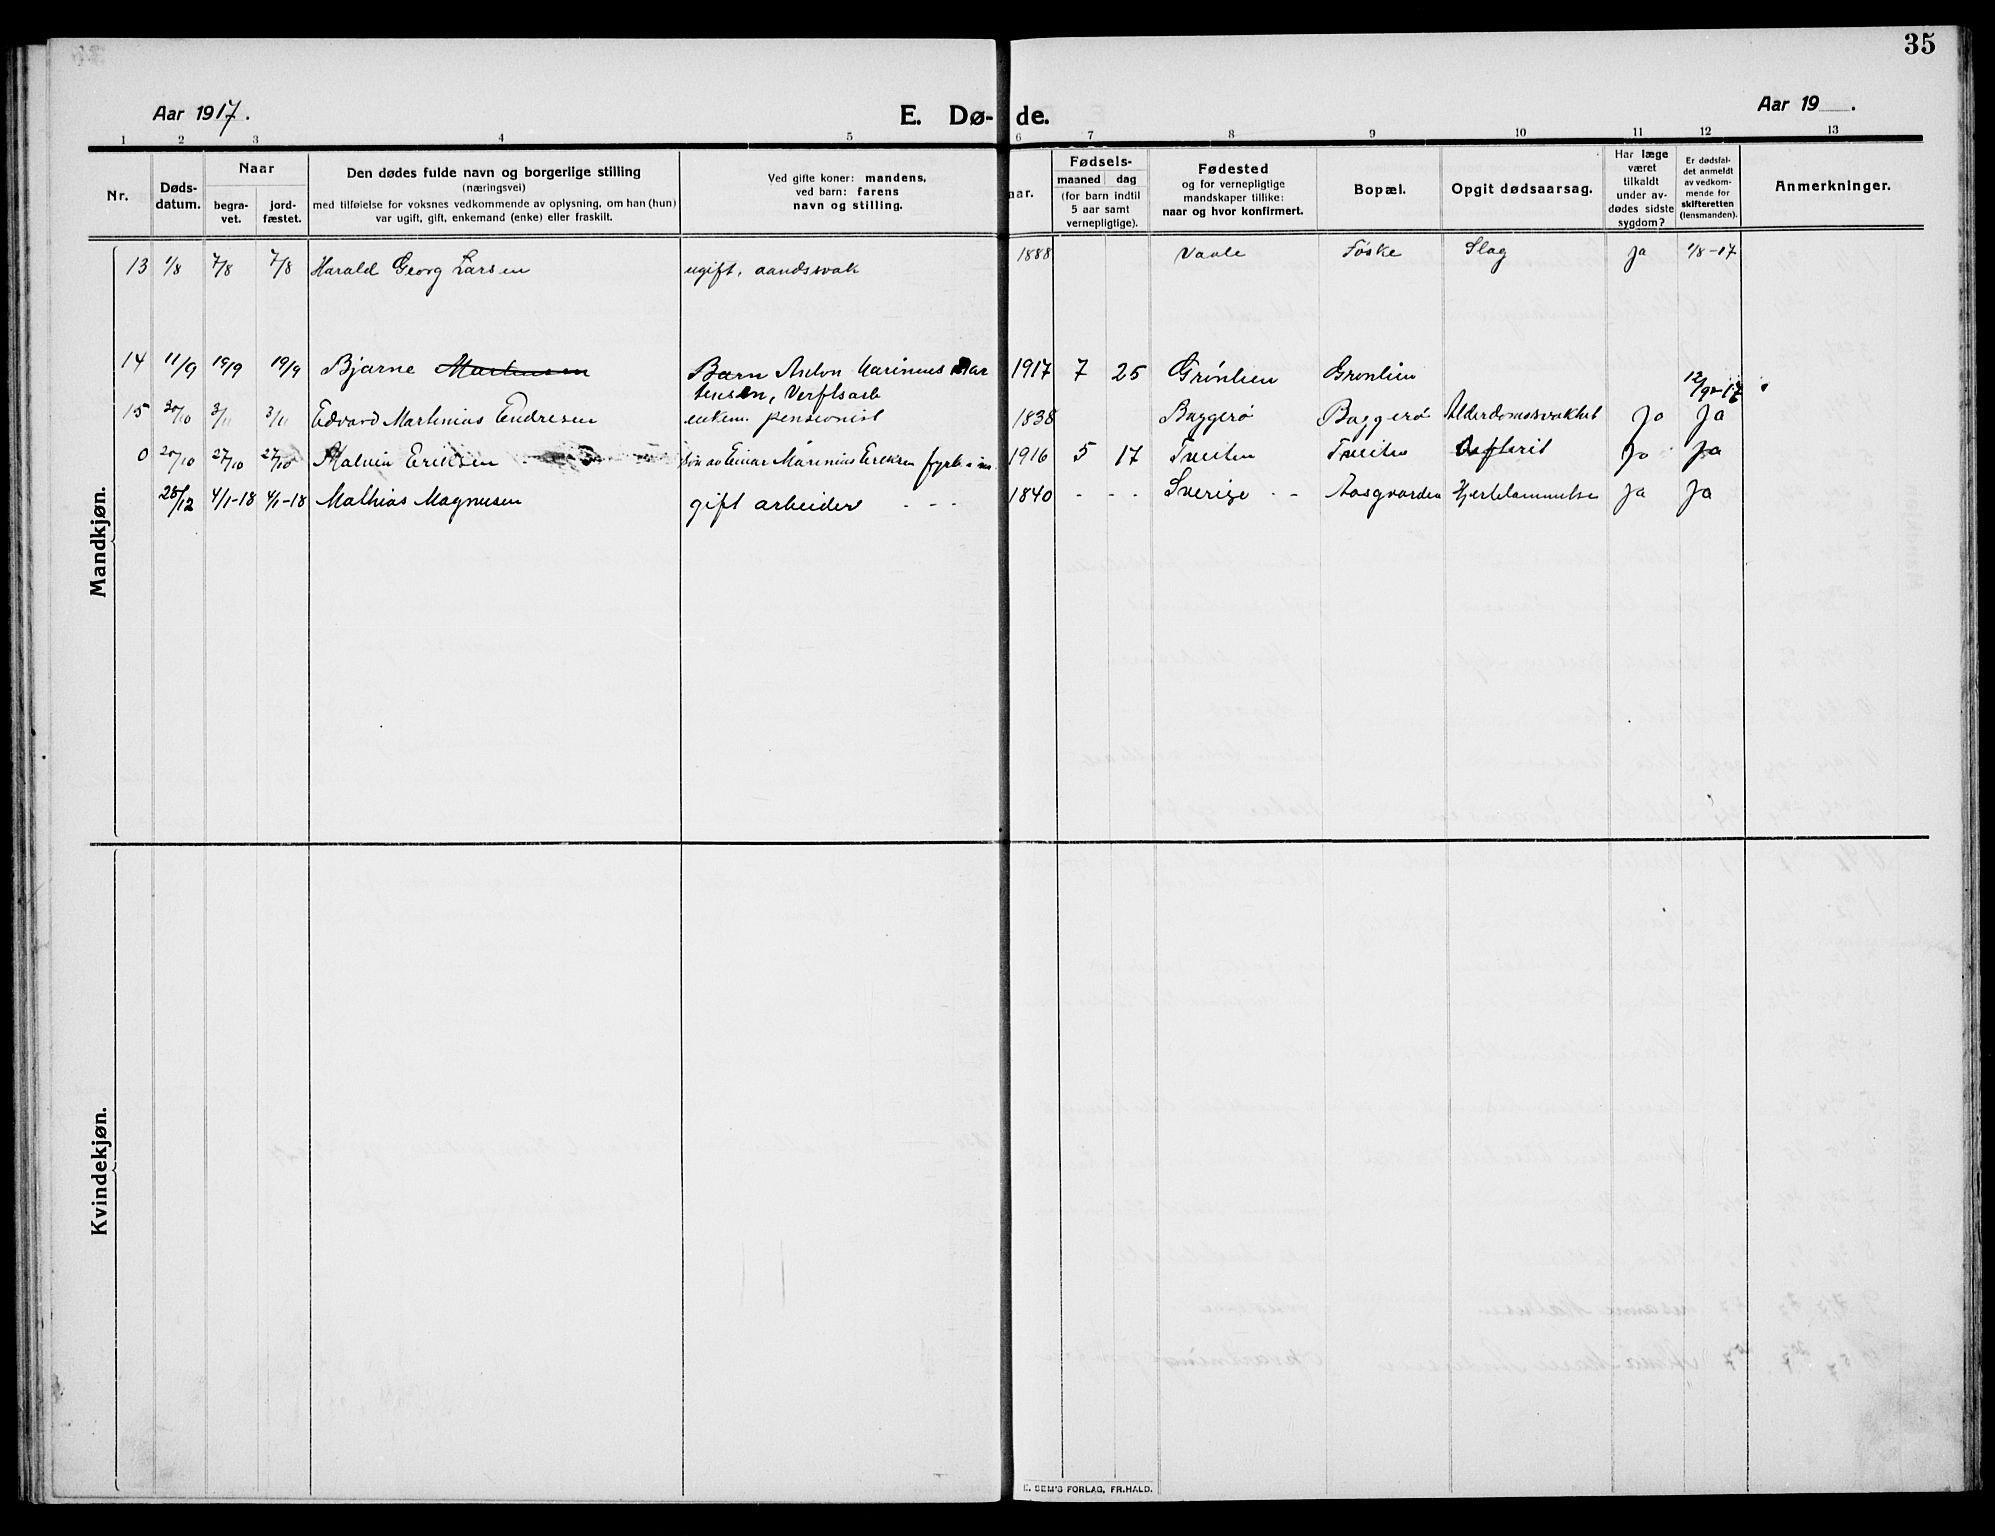 35
Aar 1917.
E. Dø- de.
Aar 19 .
1 2 3 4 5 6 7 8 9 10 11 12 13
Nr.
Døds-
datum.
Naar
begra-
vet.
jord-
fæstet.
Den dødes fulde navn og borgerlige stilling
(næringsvei)
med tilføielse for voksnes vedkommende av oplysning, om han (hun)
var ugift, gift, enkemand (enke) eller fraskilt.
Ved gifte koner: mandens,
ved barn: farens
navn og stilling.
aar.
Fødsels-
maaned dag
(for barn indtil
5 aar samt
vernepligtige).
Fødested
og for vernepligtige
mandskaper tillike:
naar og hvor konfirmert.
Bopæl.
Opgit dødsaarsag.
Har læge
været
tilkaldt
under av-
dødes sidste
sygdom?
Er dødsfal-
det anmeldt
av vedkom-
mende for
skifteretten
(lensmanden).
Anmerkninger.
Mandkjøn.
13 1/8 7/8 7/8 Harald Georg Larsen ugift, aandssvak 1888 Vaale Føske Slag Ja 1/8-17
14 11/9 19/9 19/9 Bjarne Martensen Barn Anton Marinius Mar 1917 7 25 Grønlien Grønlien 12/9-17
tensen, Verftsarb
15 30/10 3/11 3/11 Edvard Martinius Endresen enkem. pensionist 1838 Baggerø Baggerø Alderdomssvakhet Jo Ja
0 20/10 27/10 27/10 Halvin Eriksen Søn av Einar Marinius Eriksen fyrb. 1916 5 17 Tveiten Tveiten Jo Ja
28/12 4/1-18 4/1-18 Mathias Magnusen gift arbeider - - - 1840 - - - Sverige - - Aasgaarden Hjertelammelse Ja Ja
Kvindekjøn.
E. SEM'S FORLAG, FR.HALD.